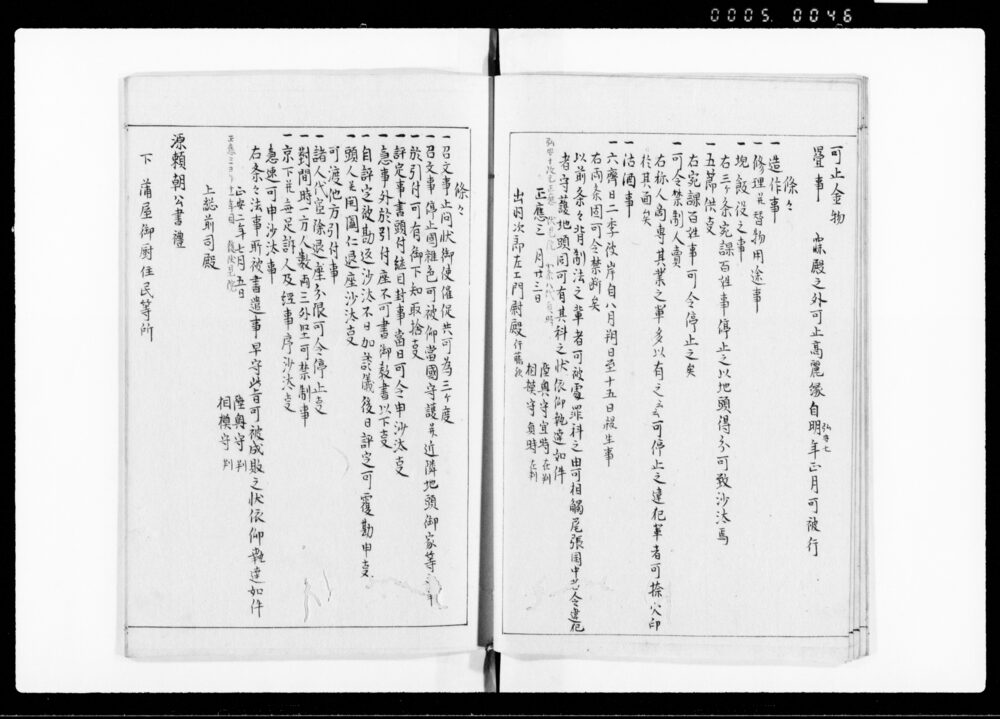 0005. 0046
可止金物
畳事 寐殿之外可止高麗縁自明年正月可被行
弘安七
條々
一造作事
一修理并替物用途事
一埦飯役之事
右三ケ条宛課百姓事停止之以地頭得分可致沙汰焉
一五節供事
右宛課百姓事可令停止之矣
一可令禁制人賣
右称人商專其業之輩多以有之云可停止之違犯輩者可捺火印
於其面矣
一沽酒事
一六齋日二季彼岸自八月朔日至十五日殺生事
右両条固可令禁断矣
以前条々背制法之輩者可被處罪科之由可相觸尾張国中若令違犯
者守護地頭同可有其科之状依仰執達如件
正應三 月廿三日
陸奥守宣時 在判
相模守貞時 在判
出羽次郎左エ門尉殿 行藤歟
條々
一召文事止問状御使催促共可為三ケ度
一召文事停止國雜色可被仰當國守護并近隣地頭御家等
一於引付可有御下知取捨事
一評定事書頭付継目封事當日可令申沙汰事
一急事外於引付座不可書御教書以下事
一自評定被勘返沙汰不日加談儀後日評定可覆勘申事
一頭人并開闔仁退座沙汰事
可渡他方引付事
一諸人代官除退座分限可令停止事
一對問時一方人数両三外堅可禁制事
一京下并每足訴人及經事序沙汰事
急速可申沙汰事
右条々法事所被書遣事早守此旨可被成敗之状依仰執達如件
正安二年七月五日
陸奥守 判
相模守 判
上総前司殿
源頼朝公書禮
下 蒲屋御厨住民等所